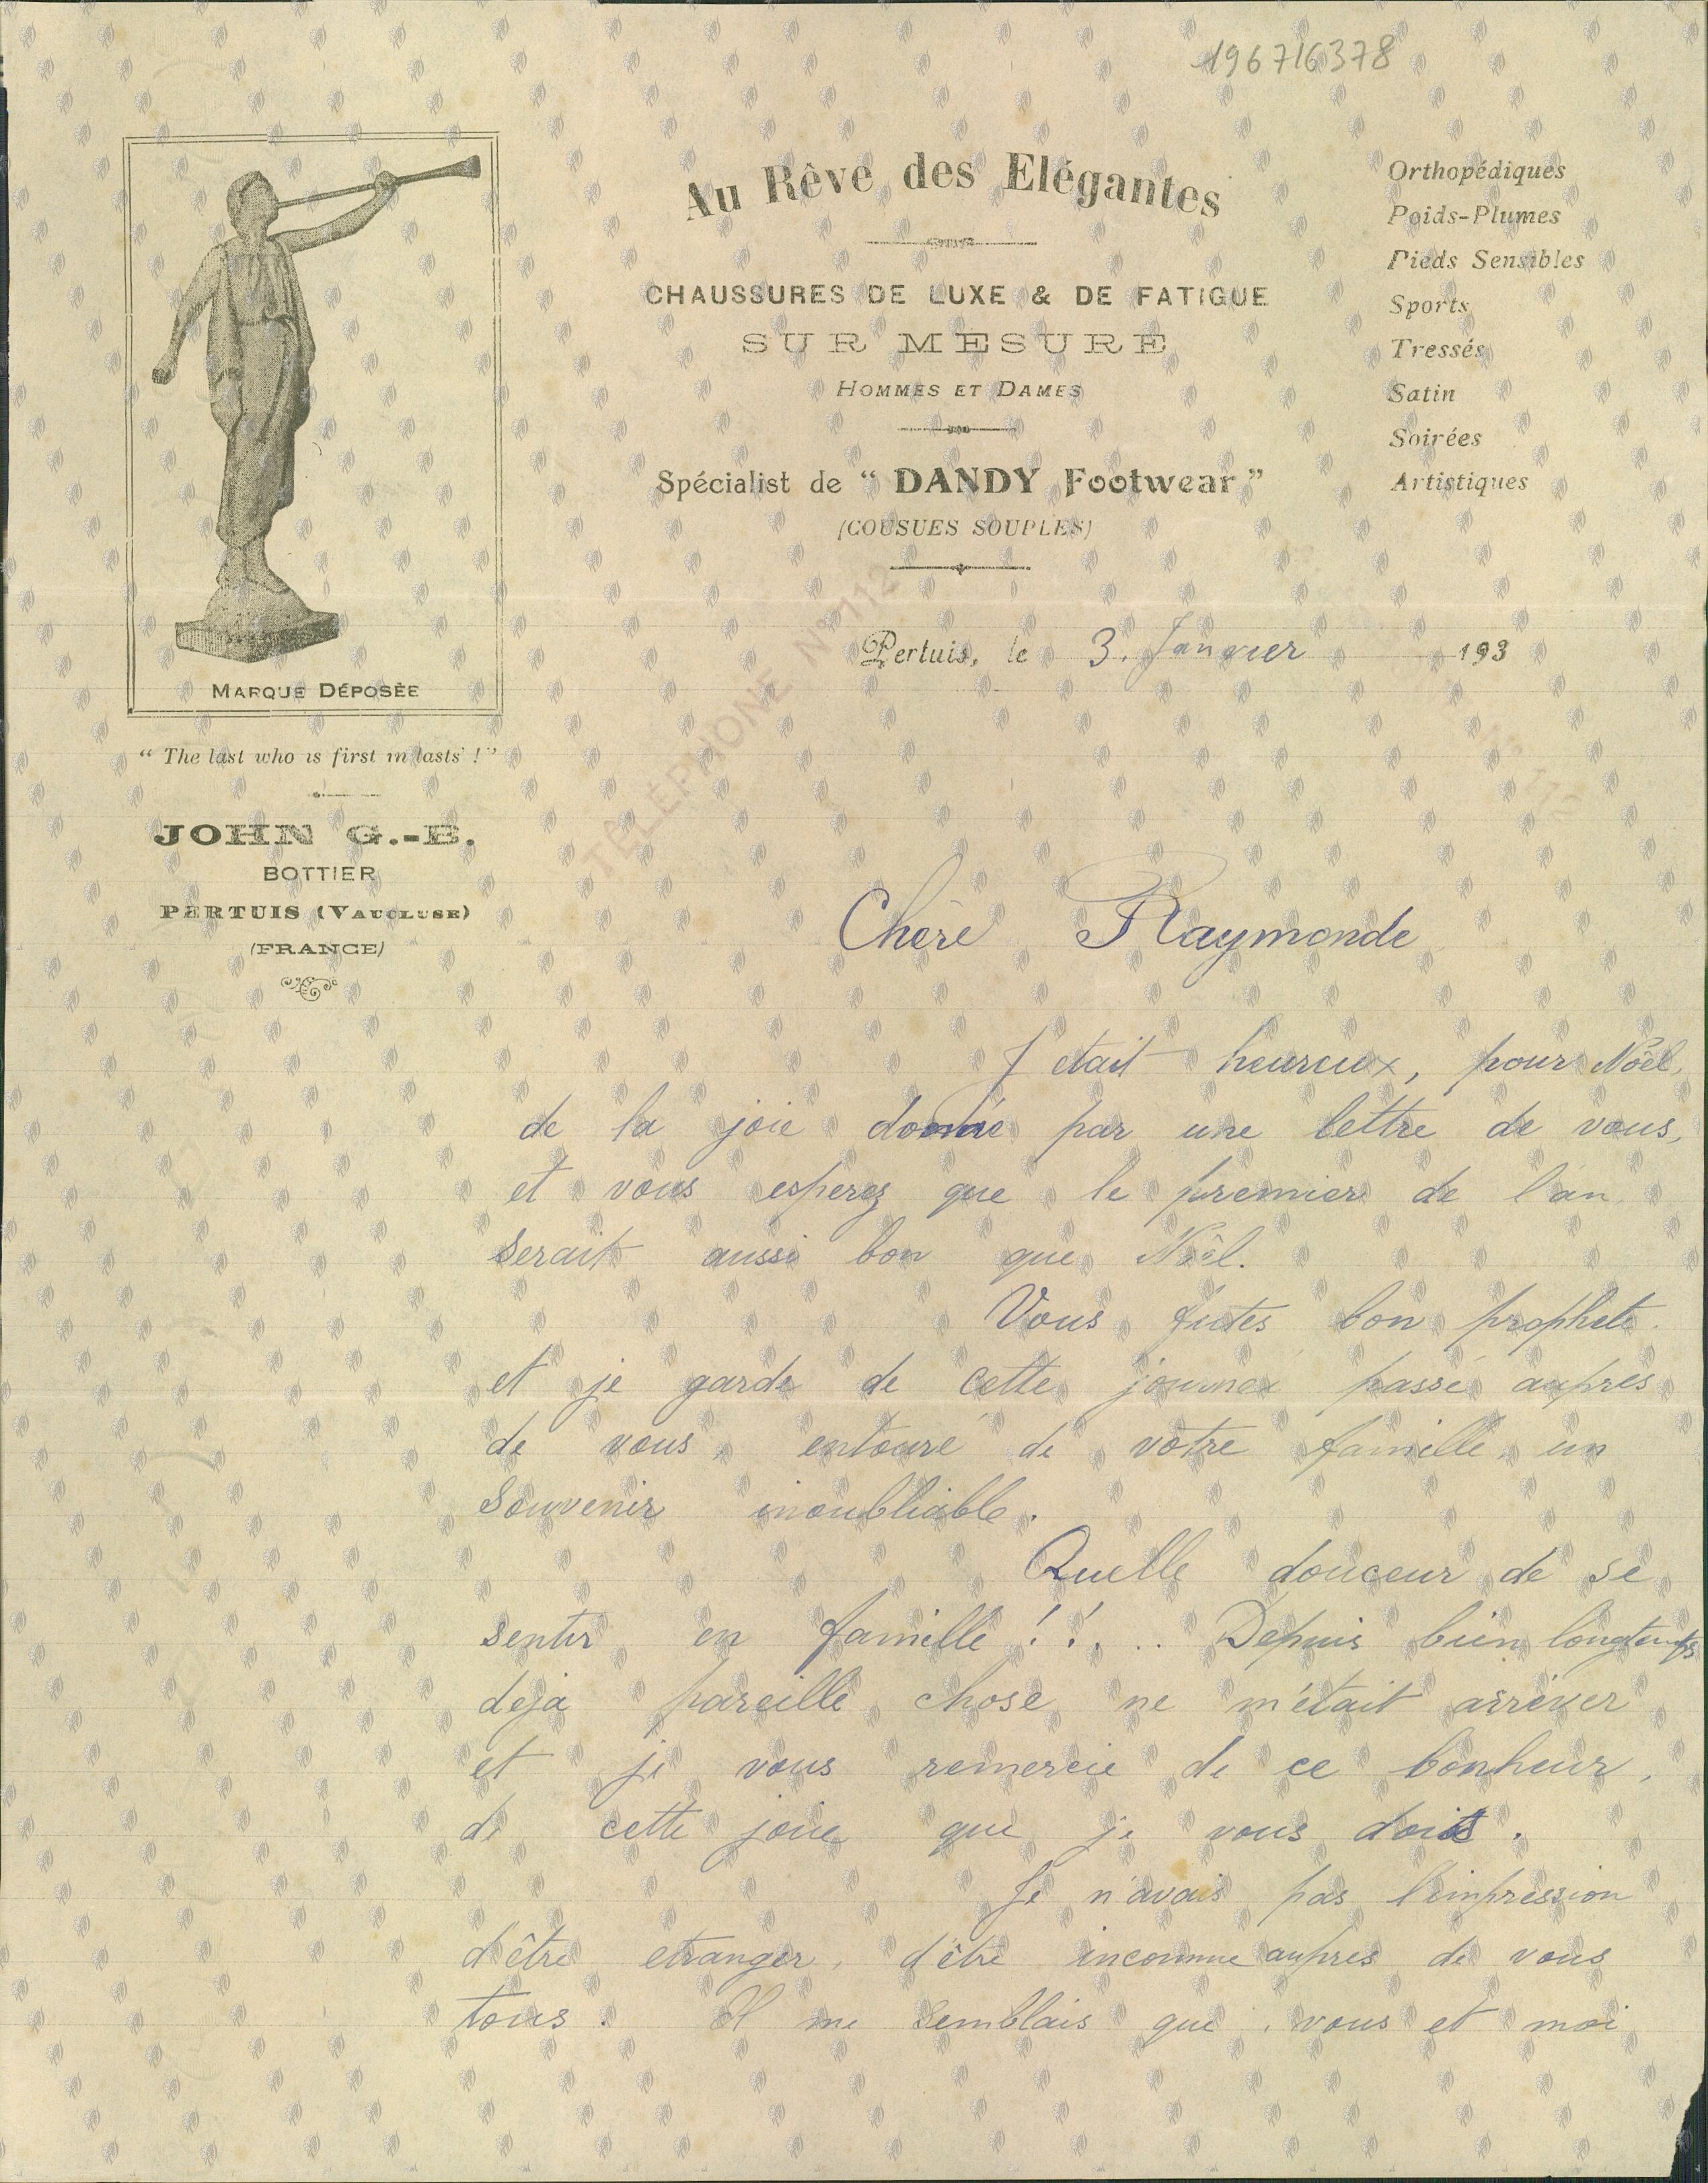 196716378
Au Rêve des Elégantes
CHAUSSURES DE LUXE & DE FATIGUE
SUR MESURE
HOMMES ET DAMES
Spécialist de " DANDY Footwear "
(COUSUES SOUPLES)
Orthopédiques
Poids-Plumes
Pieds Sensibles
Sports
Tressés
Satin
Soirées
Artistiques
MARQUE DÉPOSÉE
" The last who is first in lasts ! "
JOHN G.-B.
BOTTIER
PERTUIS (VAUCLUSE)
(FRANCE)
TÉLÉPHONE N° 112
N° 112
Pertuis, le 3. Janvier 193
Chère Raymonde
J etait heureux, pour Nôel,
de la joie donnée par une lettre de vous,
et vous esperez que le premier de l'an
serait aussi bon que Nôel.
Vous futes bon prophete
et je garde de cette journée passé aupres
de vous, entouré de votre famille, un
Souvenir inoubliable.
Quelle douceur de se
sentir en famille !!... Depuis bien longtemps
deja pareille chose ne m'était arriver
et je vous remercie de ce bonheur,
de cette joie que je vous dois.
Je n'avais pas l'impression
d'être etranger, d'être inconnue aupres de vous
tous. Il me semblais que, vous et moi